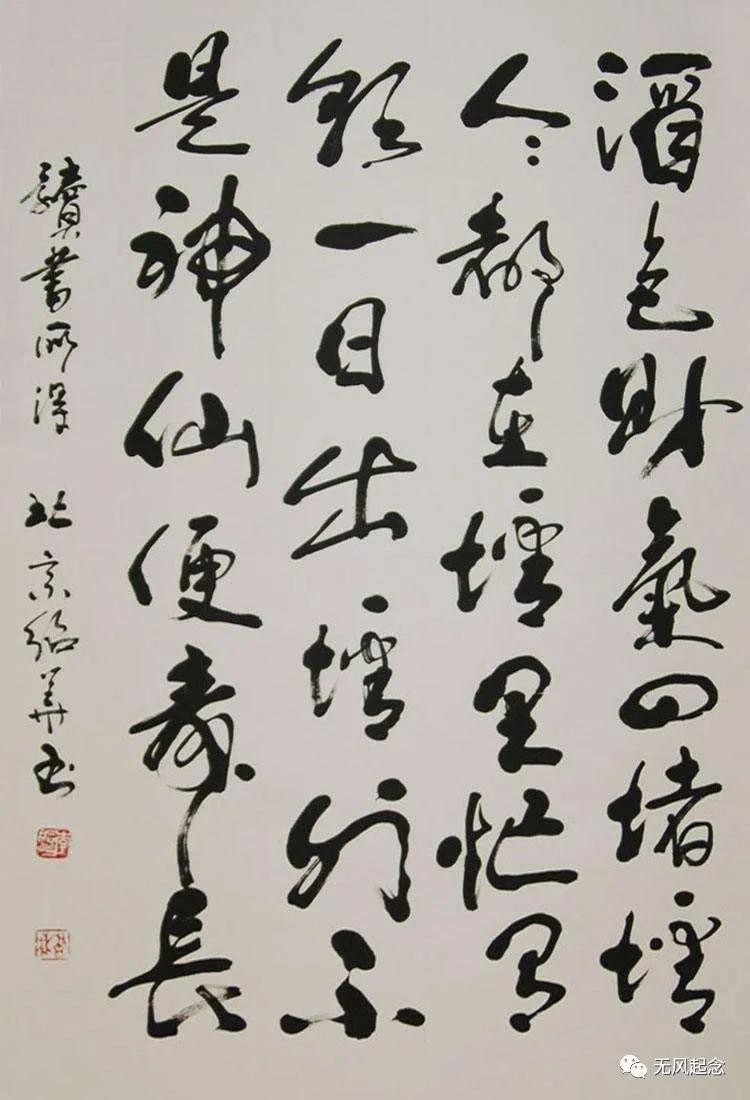 酒色財氣四堵墻
人人都在墻里忙有
朝一日出墻行不
是神仙便壽長
讀書所得 北京紹華书
无风起念